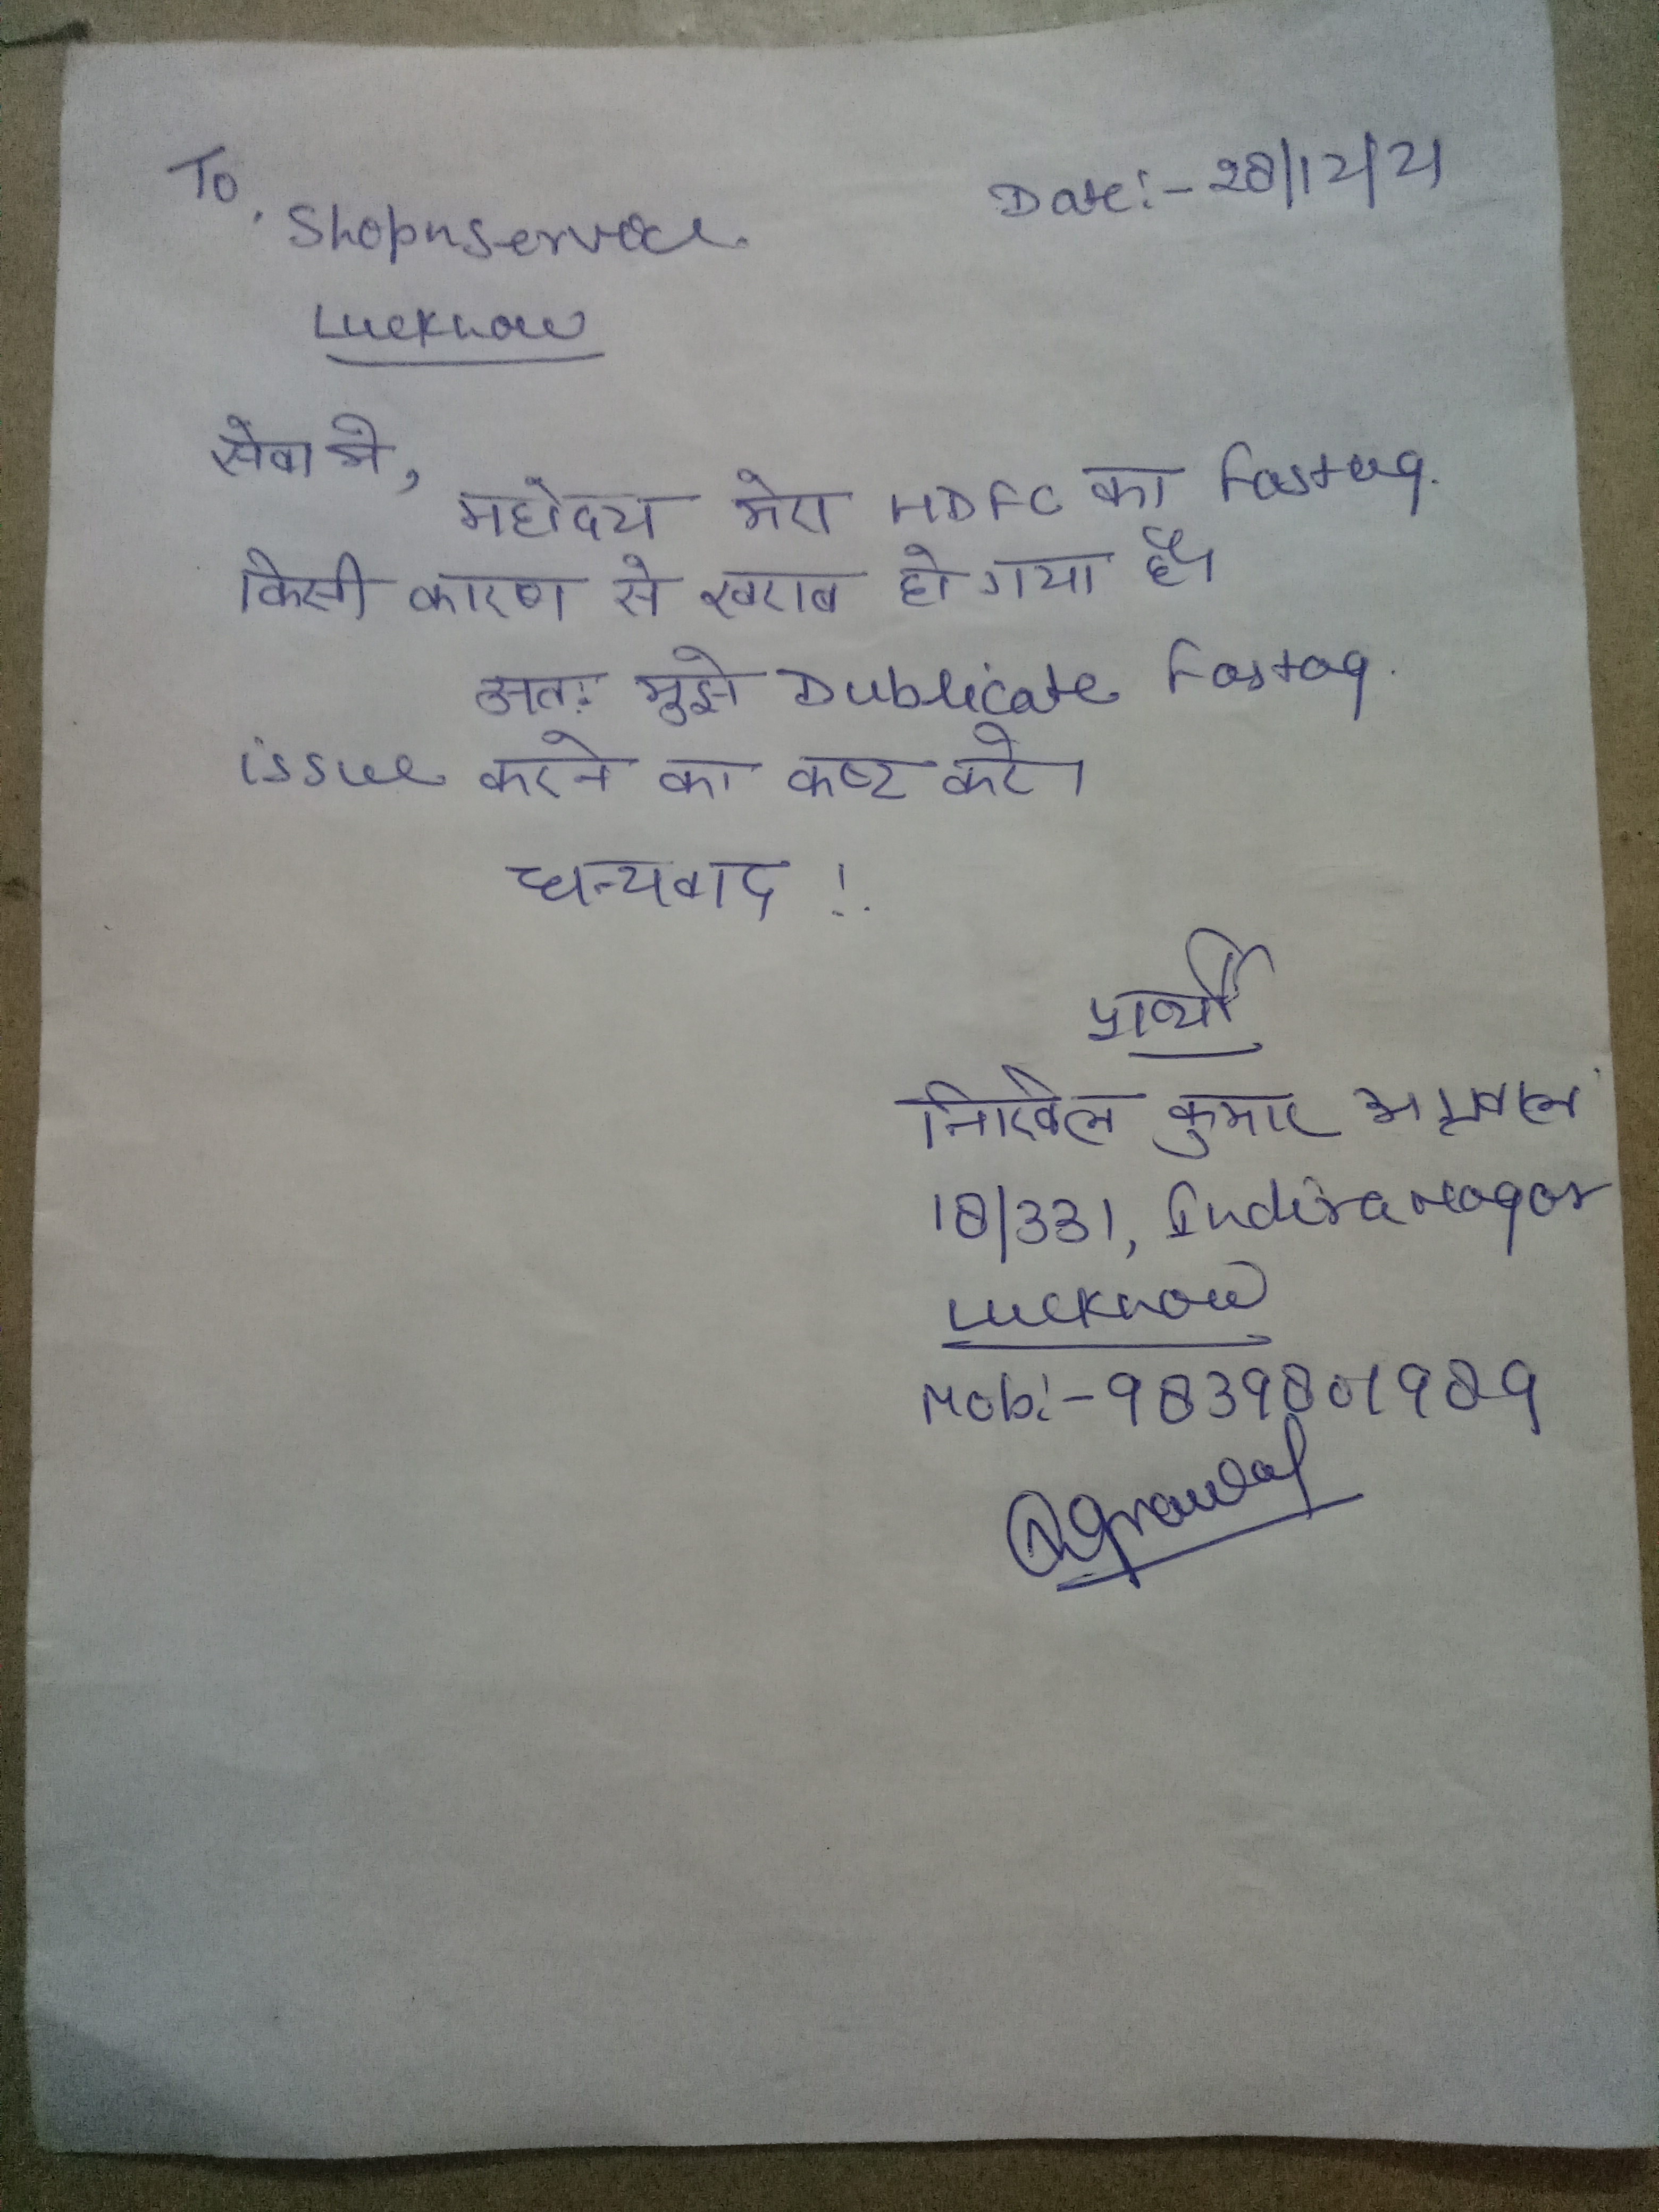 To,
Date:- 28/12/21
Shopnservice
Lucknow
सेवा मे,
महोदय मेरा HDFC का Fastag.
किसी कारण से खराब हो गया है।
अतः मुझे Dublicate Fastag.
issue करने का कष्ट करे।
धन्यवाद !.
प्रार्थी
निखिल कुमार अग्रवाल
18/331, Indira Nagar
Lucknow
Mob:- 9839801989
Agrawal